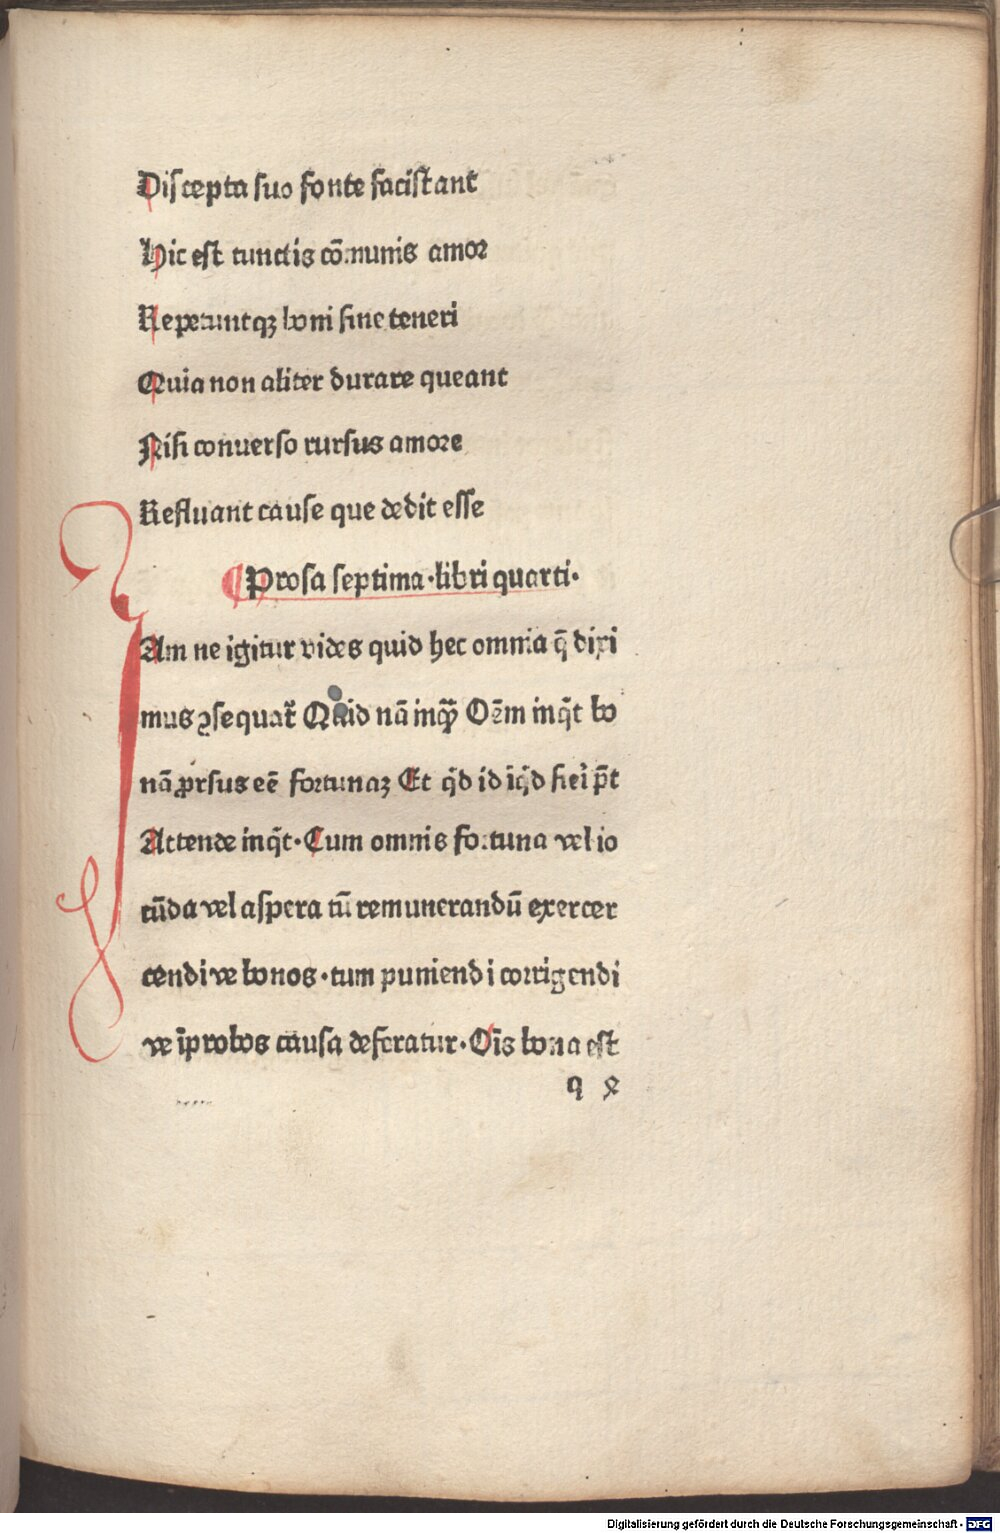 Discepta suo fonte facisc̃ant
Hic est cunctis cōmunis amor
Repetuntqꝫ boni fine teneri
Quia non aliter durare queant
Nisi conuerso rursus amore
Refluant cause que dedit esse
¶ Prosa septima·libri quarti·
IAm ne igitur vides quid hec omnia q̄ dixi
mus ꝯsequat᷑ Quid nā inqͣꝫ Oēm inq̄t bo
nā ꝓrsus eē fortunaꝫ Et q̇d id īq̇d fieri p̄t
Attende inq̄t·Cum omnis fortuna vel io
cūda vel aspera tū remunerandū exercer
cendi ve bonos·tum puniendi corrigendi
ve īprobos causa deferatur·Oīs bona est
q x
Digitalisierung gefördert durch die Deutsche Forschungsgemeinschaft - DFG